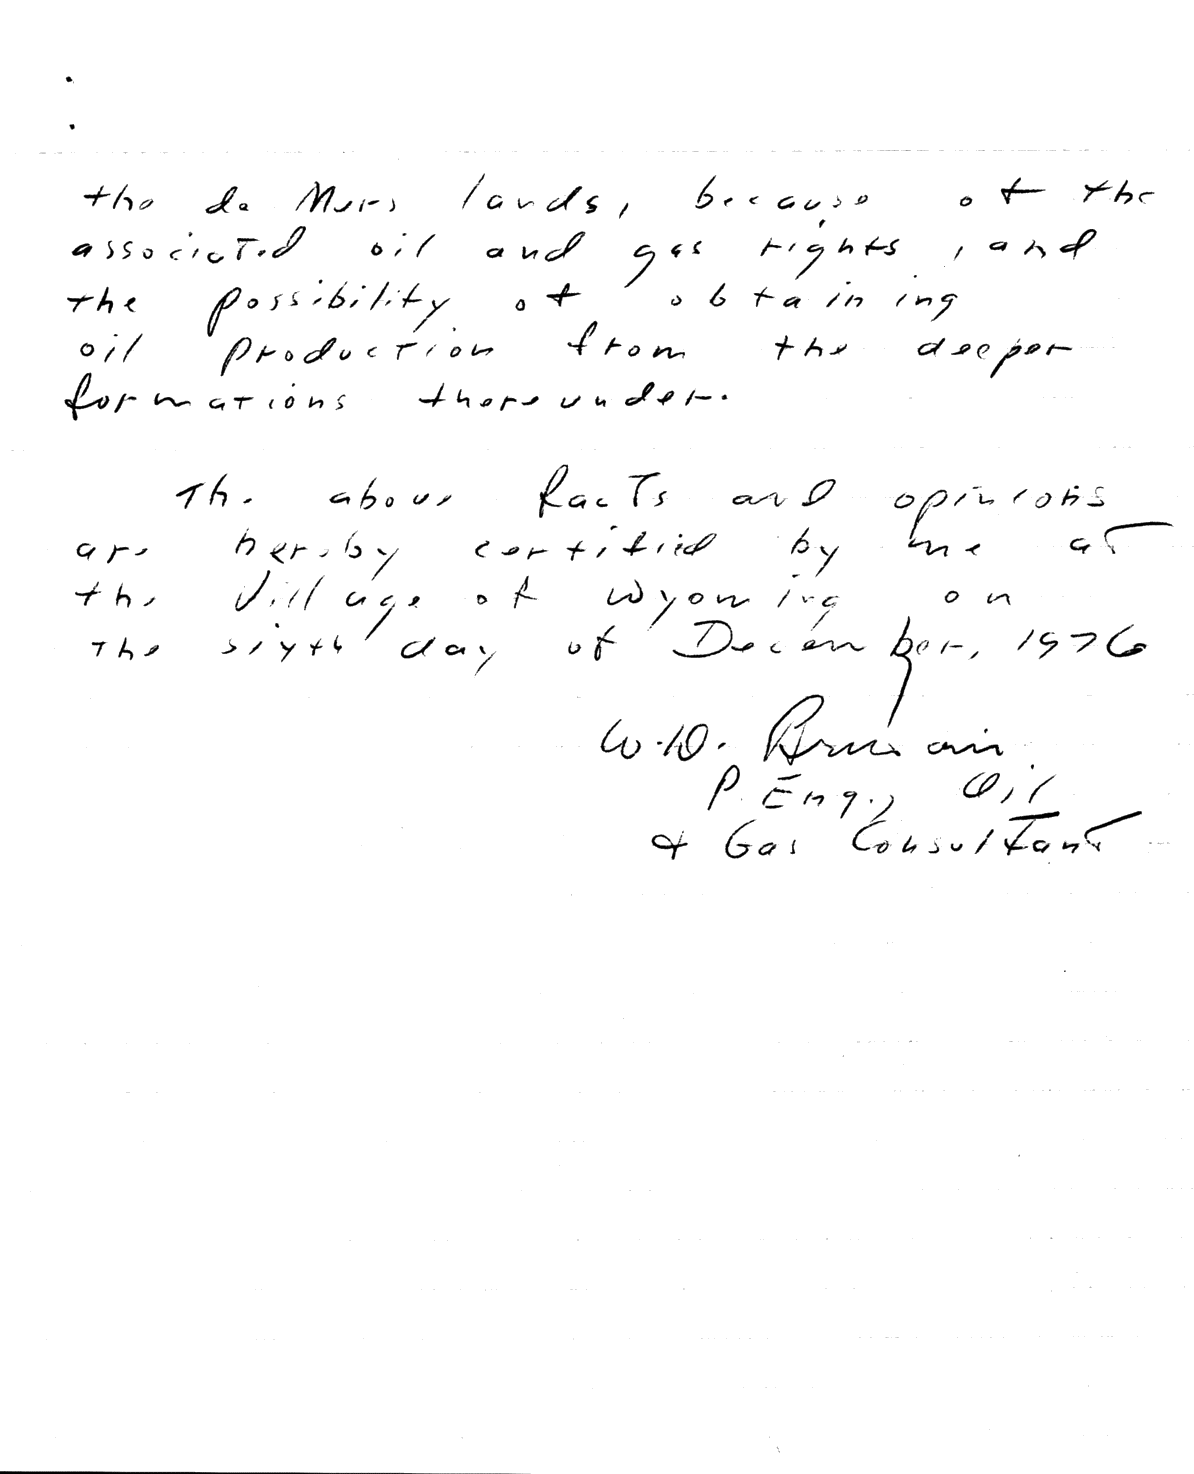 the de Murs lands, because of the
associated oil and gas rights, and
the possibility of obtaining
oil production from the deeper
formations thereunder.
The above facts and opinions
are hereby certified by me at
the Village of Wyoming on
the sixth day of December, 1976
W.D.
P. Eng., Oil
& Gas Consultant